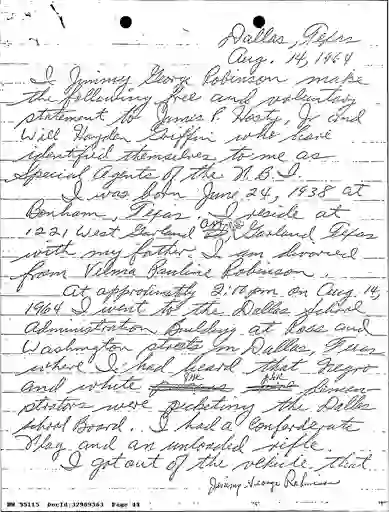 Dallas, Texas
Aug. 14, 1964
I Jimmy George Robinson make
the following free and voluntary
statement to James P. Hosty, Jr and
Will Hayden Griffin who have
identified themselves to me as
Special Agents of the F.B.I.
I was born June 24, 1938 at
Bonham, Texas. I reside at
1221 West Garland Garland Texas
with my father. I am divorced
from Velma Pauline Robinson.
At approximatly 2:10 pm on Aug. 14,
1964 I went to the Dallas School
Administration Building at Ross and
Washington streets in Dallas, Texas
where I had heard that Negro
and white demon
strators were picketing the Dallas
school Board. I had a Confederate
Flag and an unloaded rifle.
I got out of the vehicle that
Jimmy George Robinson
NW 55115 DocId:32989363 Page 44